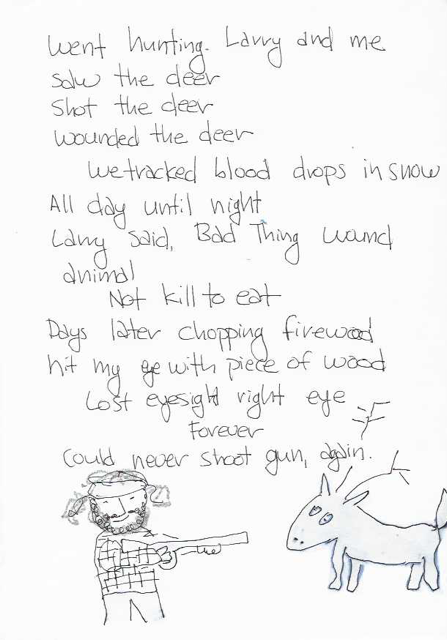 Went hunting. Larry and me
saw the deer
Shot the deer
wounded the deer
we tracked blood drops in snow
All day until night
Larry said, Bad Thing wound
animal
Not kill to eat
Days later chopping firewood
hit my eye with piece of wood
Lost eyesight right eye
Forever
Could never shoot gun, again.